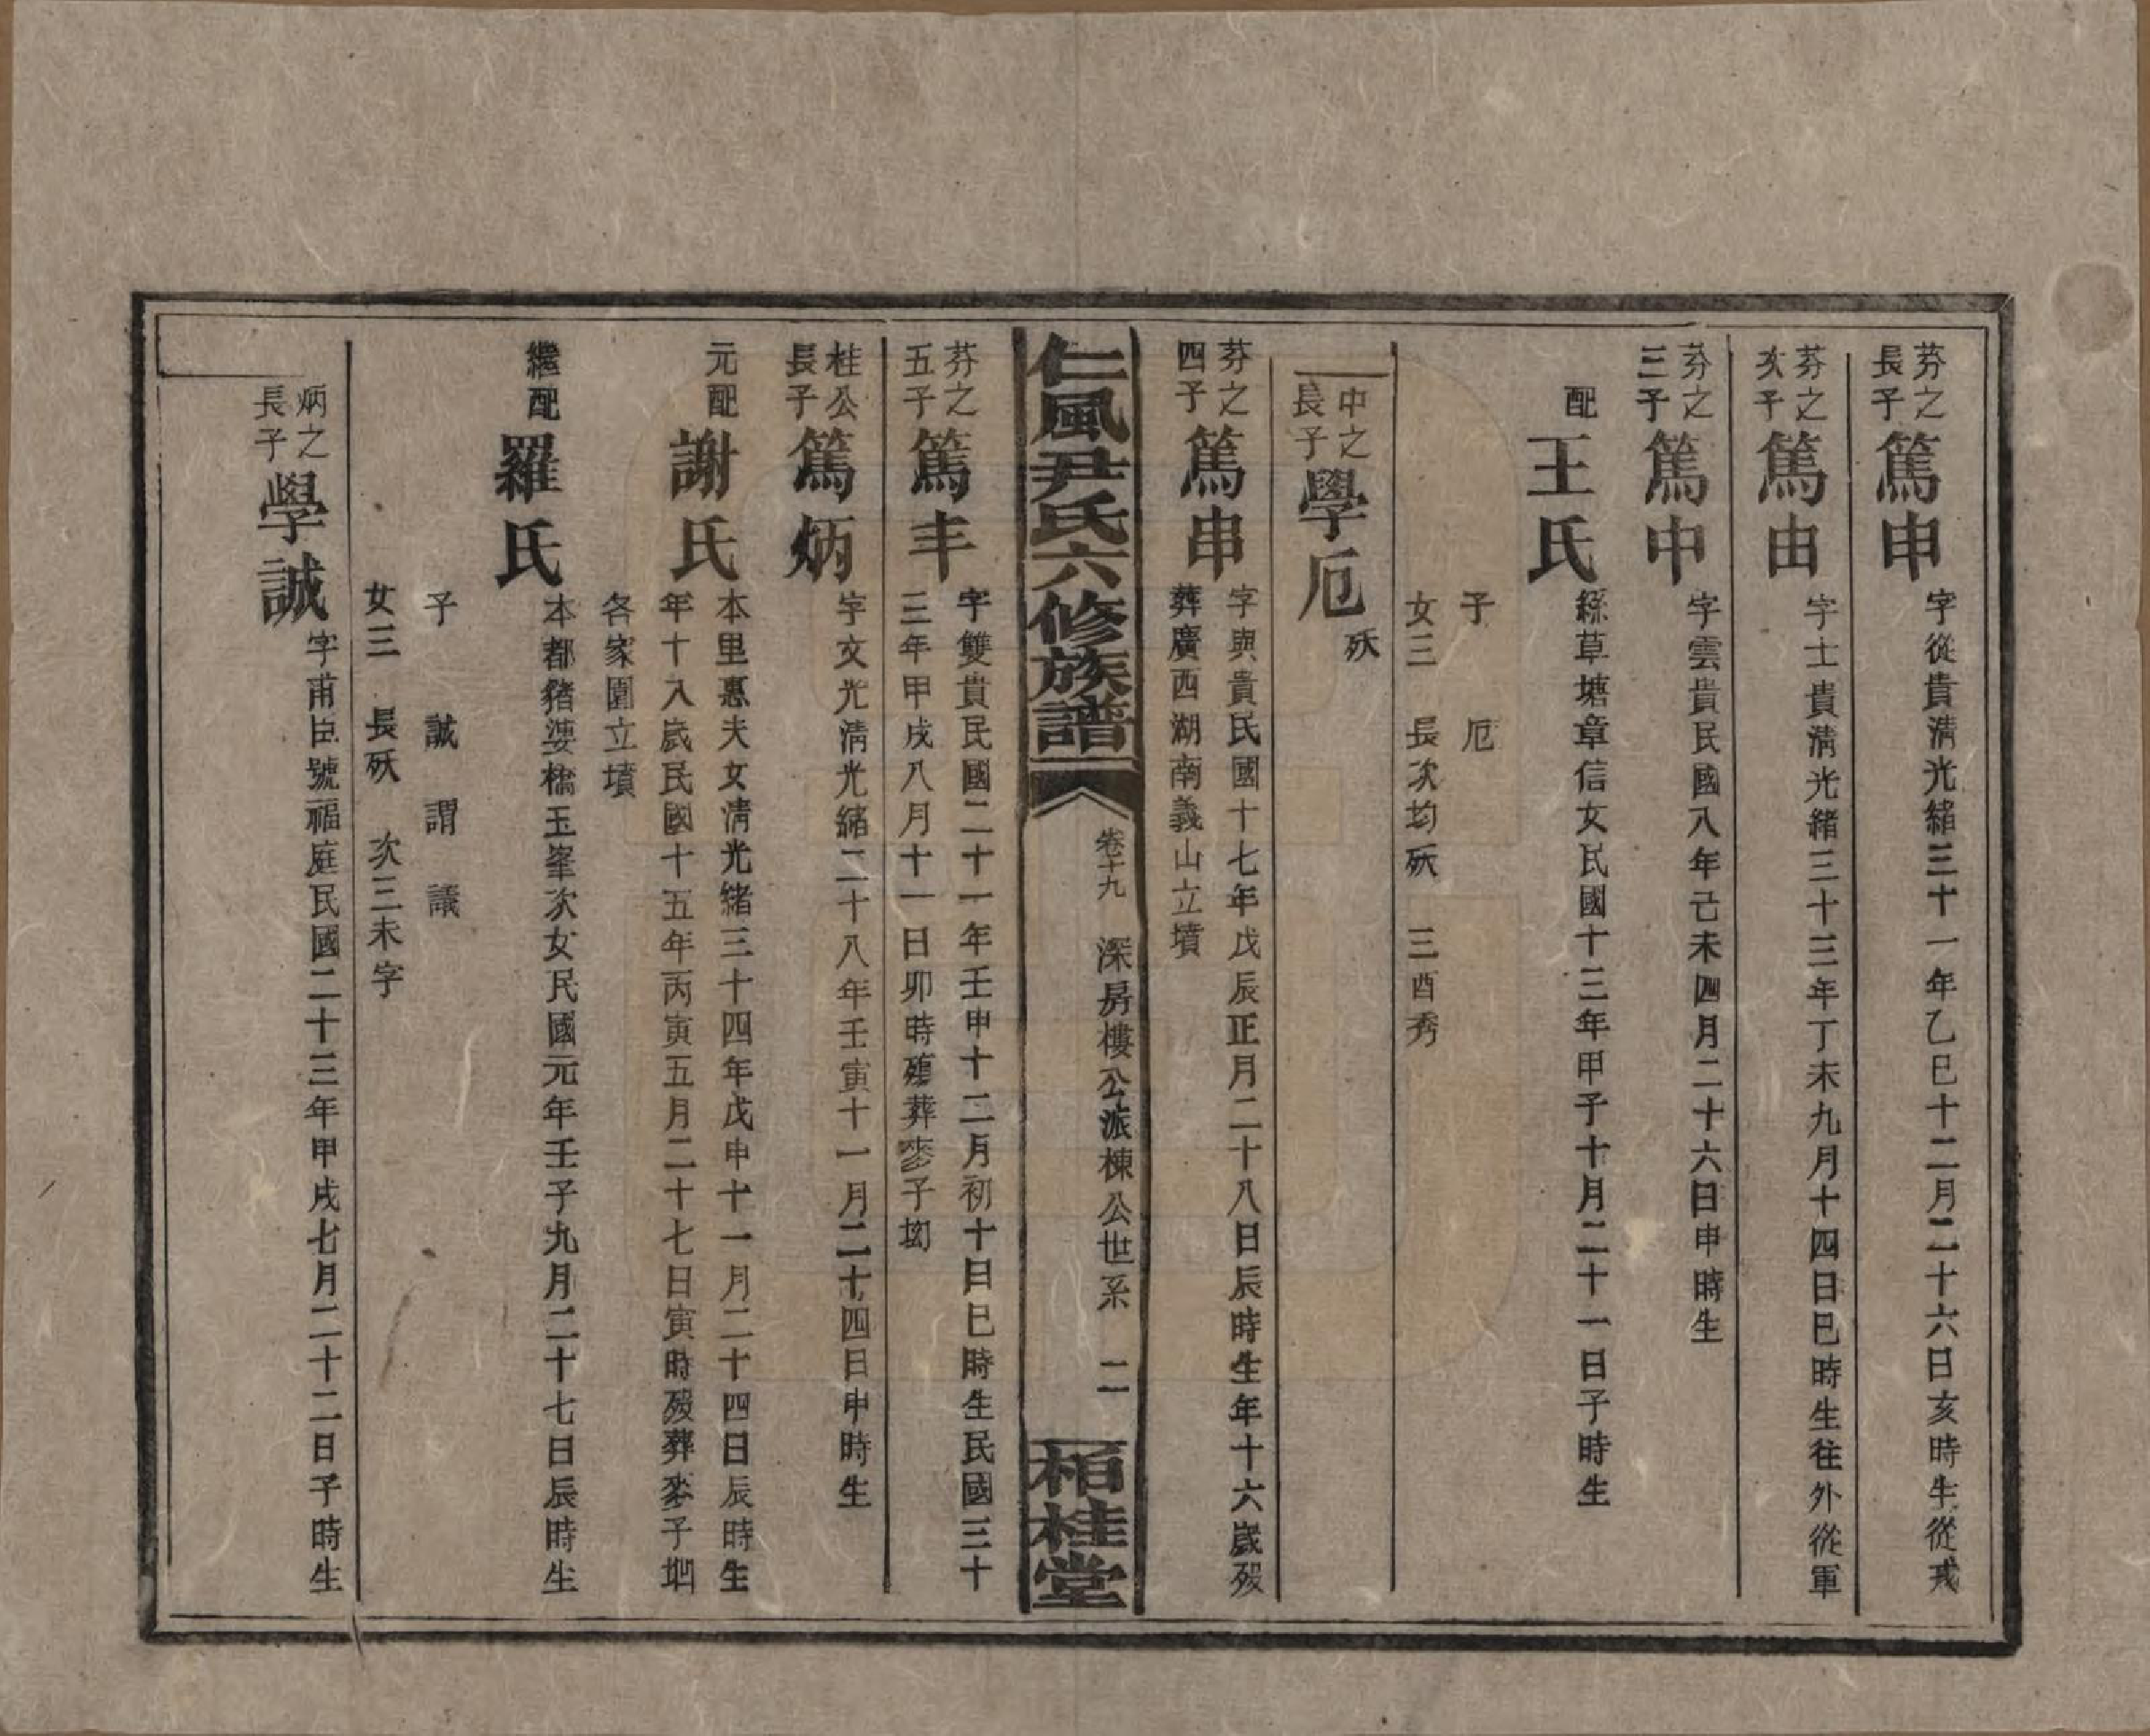 芬之
長子
篤申
字從貴清光緒三十一年乙巳十二月二十六日亥時生從戎
芬之
次子
篤由
字士貴清光緒三十三年丁未九月十四日巳時生往外從軍
芬之
三子
篤中
字雲貴民國八年己未四月二十六日申時生
配
王氏
緜草塘章信女民國十三年甲子十月二十一日子時生
子 厄
女三 長次均殀 三酉秀
中之
長子
學厄
殀
芬之
四子
篤串
字興貴民國十七年戊辰正月二十八日辰時生年十六歲歿
葬廣西湖南義山立墳
仁風尹氏六修族譜
卷十九 深房樓公派棟公世系 二
栢桂堂
芬之
五子
篤丰
字雙貴民國二十一年壬申十二月初十日巳時生民國三十
三年甲戌八月十一日卯時殤葬麥子坳
桂公
長子
篤炳
字文光清光緒二十八年壬寅十一月二十四日申時生
元配
謝氏
本里惠夫女清光緒三十四年戊申十一月二十四日辰時生
年十八歲民國十五年丙寅五月二十七日寅時歿葬麥子坳
各家園立墳
繼配
羅氏
本都豬婆橋玉峯次女民國元年壬子九月二十七日辰時生
子 誠 謂 議
女三 長殀 次三未字
炳之
長子
學誠
字甫臣號福庭民國二十三年甲戌七月二十二日子時生